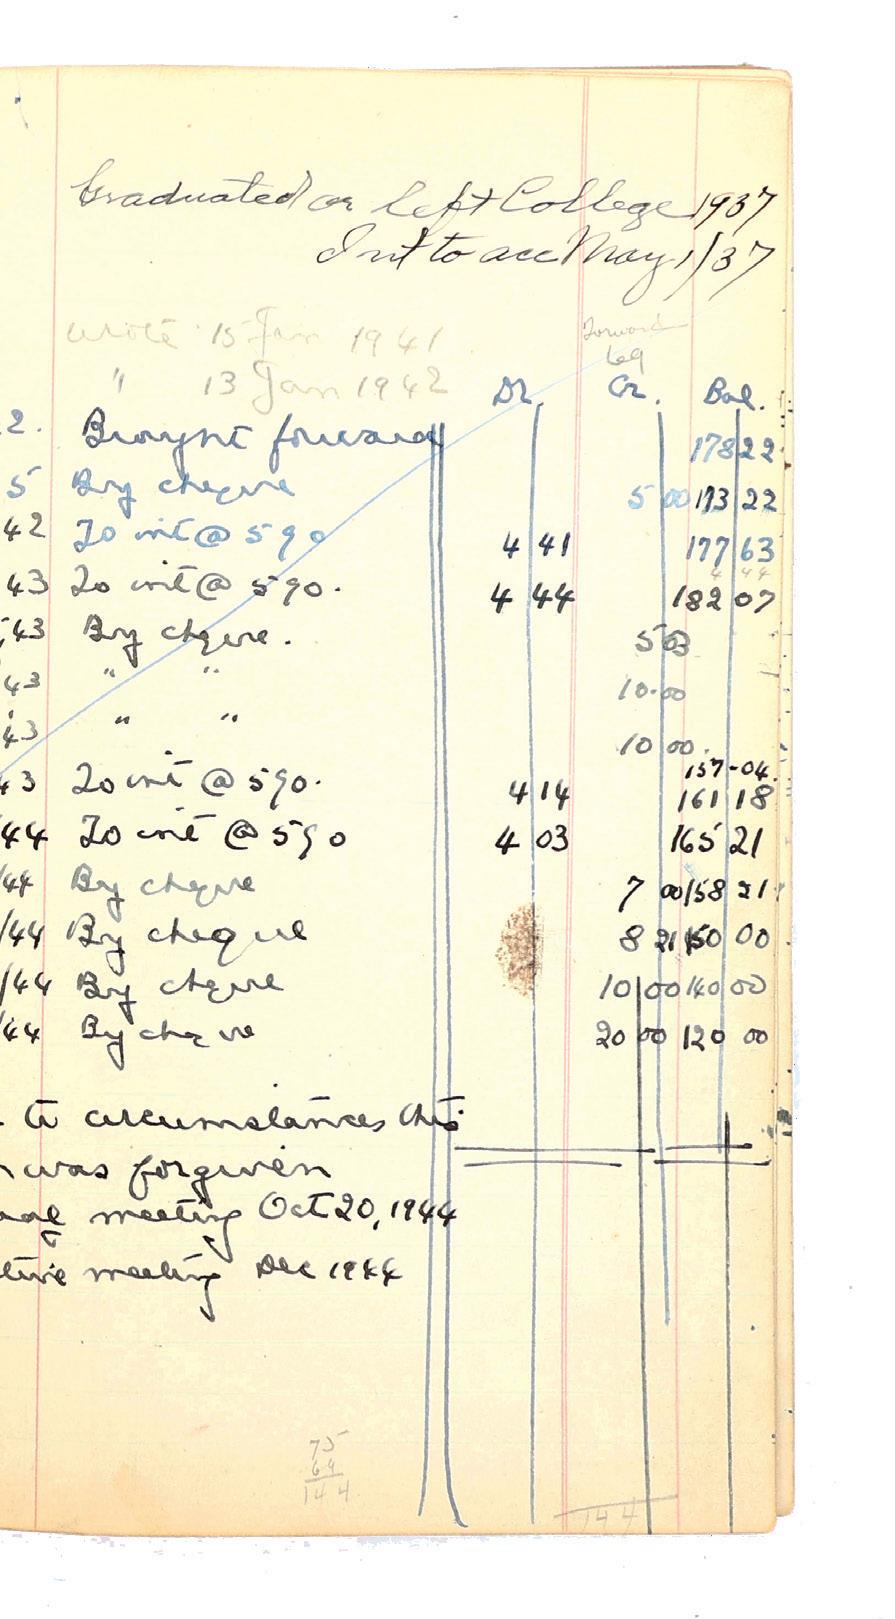 Graduated or left College 1937
Int to acc May 1/37
wrote 15 Jan 1941
Forward
" 13 Jan 1942
Dr. Cr. Bal.
2. Brought forward 178 22
5 By cheque 5 00 173 22
42 To int @ 5% 4 41 177 63
4 44
43 To int @ 5%. 4 44 182 07
43 By cheque. 5 03
43 " " 10.00
43 " " 10 00.
157-04
43 To int @ 5%. 4 14 161 18
44 To int @ 5% 4 03 165 21
/44 By cheque 7 00 158 21
/44 By cheque 8 21 150 00
/44 By cheque 10 00 140 00
44 By cheque 20 00 120 00
to circumstances this
n was forgiven
meeting Oct 20, 1944
tive meeting Dec 1944
75
69
144
144